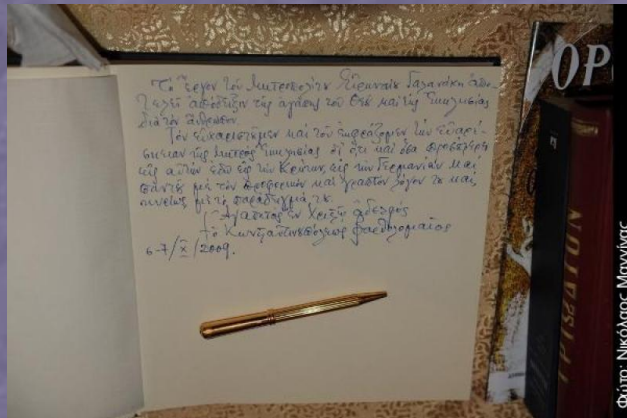 Τό ἔργον τοῦ Μητροπολίτου Εἰρηναίου Γαλανάκη ἀπο-
τελεῖ ἀπόδειξιν τῆς ἀγάπης τοῦ Θεοῦ καί τῆς Ἐκκλησίας
διά τόν ἄνθρωπον.
Τόν εὐχαριστοῦμεν καί τοῦ ἐκφράζομεν τήν εὐαρέ-
σκειαν τῆς Μητρός Ἐκκλησίας δι' ὅ,τι καί ὅσα προσέφερεν
εἰς αὐτήν ἐδῶ εἰς τήν Κρήτην, εἰς τήν Γερμανίαν καί
μέ τόν προφορικόν καί γραπτόν λόγον του καί,
κυρίως μέ τό παράδειγμά του.
Ἀγαπητός ἐν Χριστῷ ἀδελφός
† ὁ Κωνσταντινουπόλεως Βαρθολομαῖος
6-7/X/2009.
ΤΡΙΩΔΙΟΝ
Φώτο: Νικόλαος Μαγγίνας